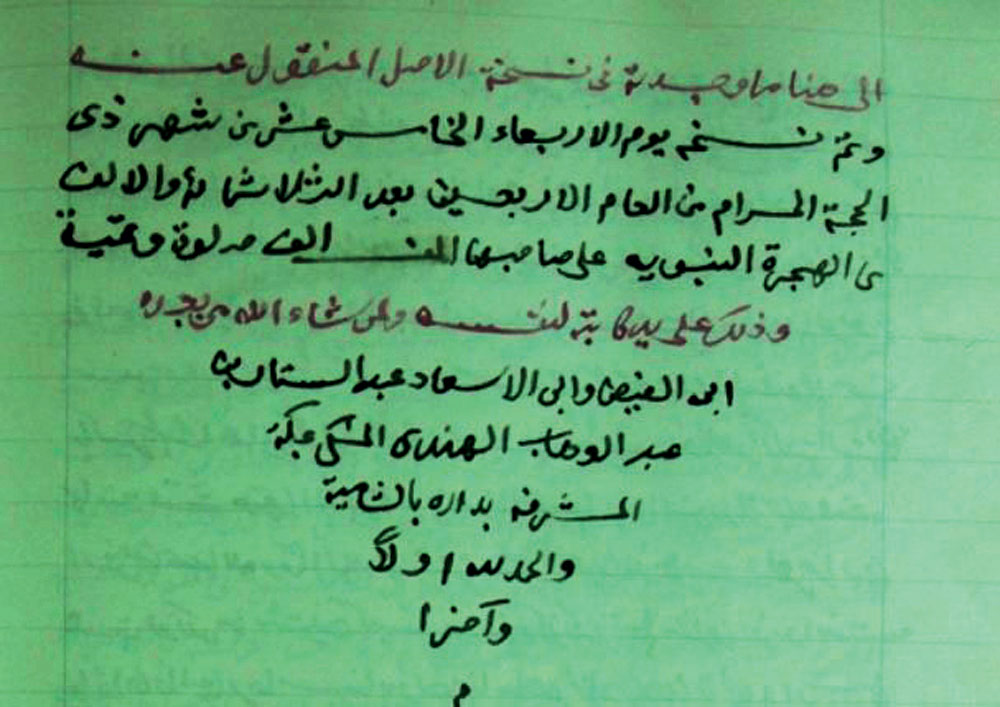 الى هنا ما وجدته في نسخة الاصل المنقول عنه
وتم نسخه يوم الاربعاء الخامس عشر من شهر ذى
الحجة الحرام من العام الاربعين بعد الثلاثمائة والالف
من الهجرة النبويه على صاحبها الف الف صلوة وتحية
وذلك على يد كاتبه لنفسه ولمن شاء الله من بعده
ابى الفيض وابى الاسعاد عبد الستار بن
عبد الوهاب الهندى المكي بمكة
المشرفه بداره بالشامية
والحمد لله اولاً
وآخرا
م